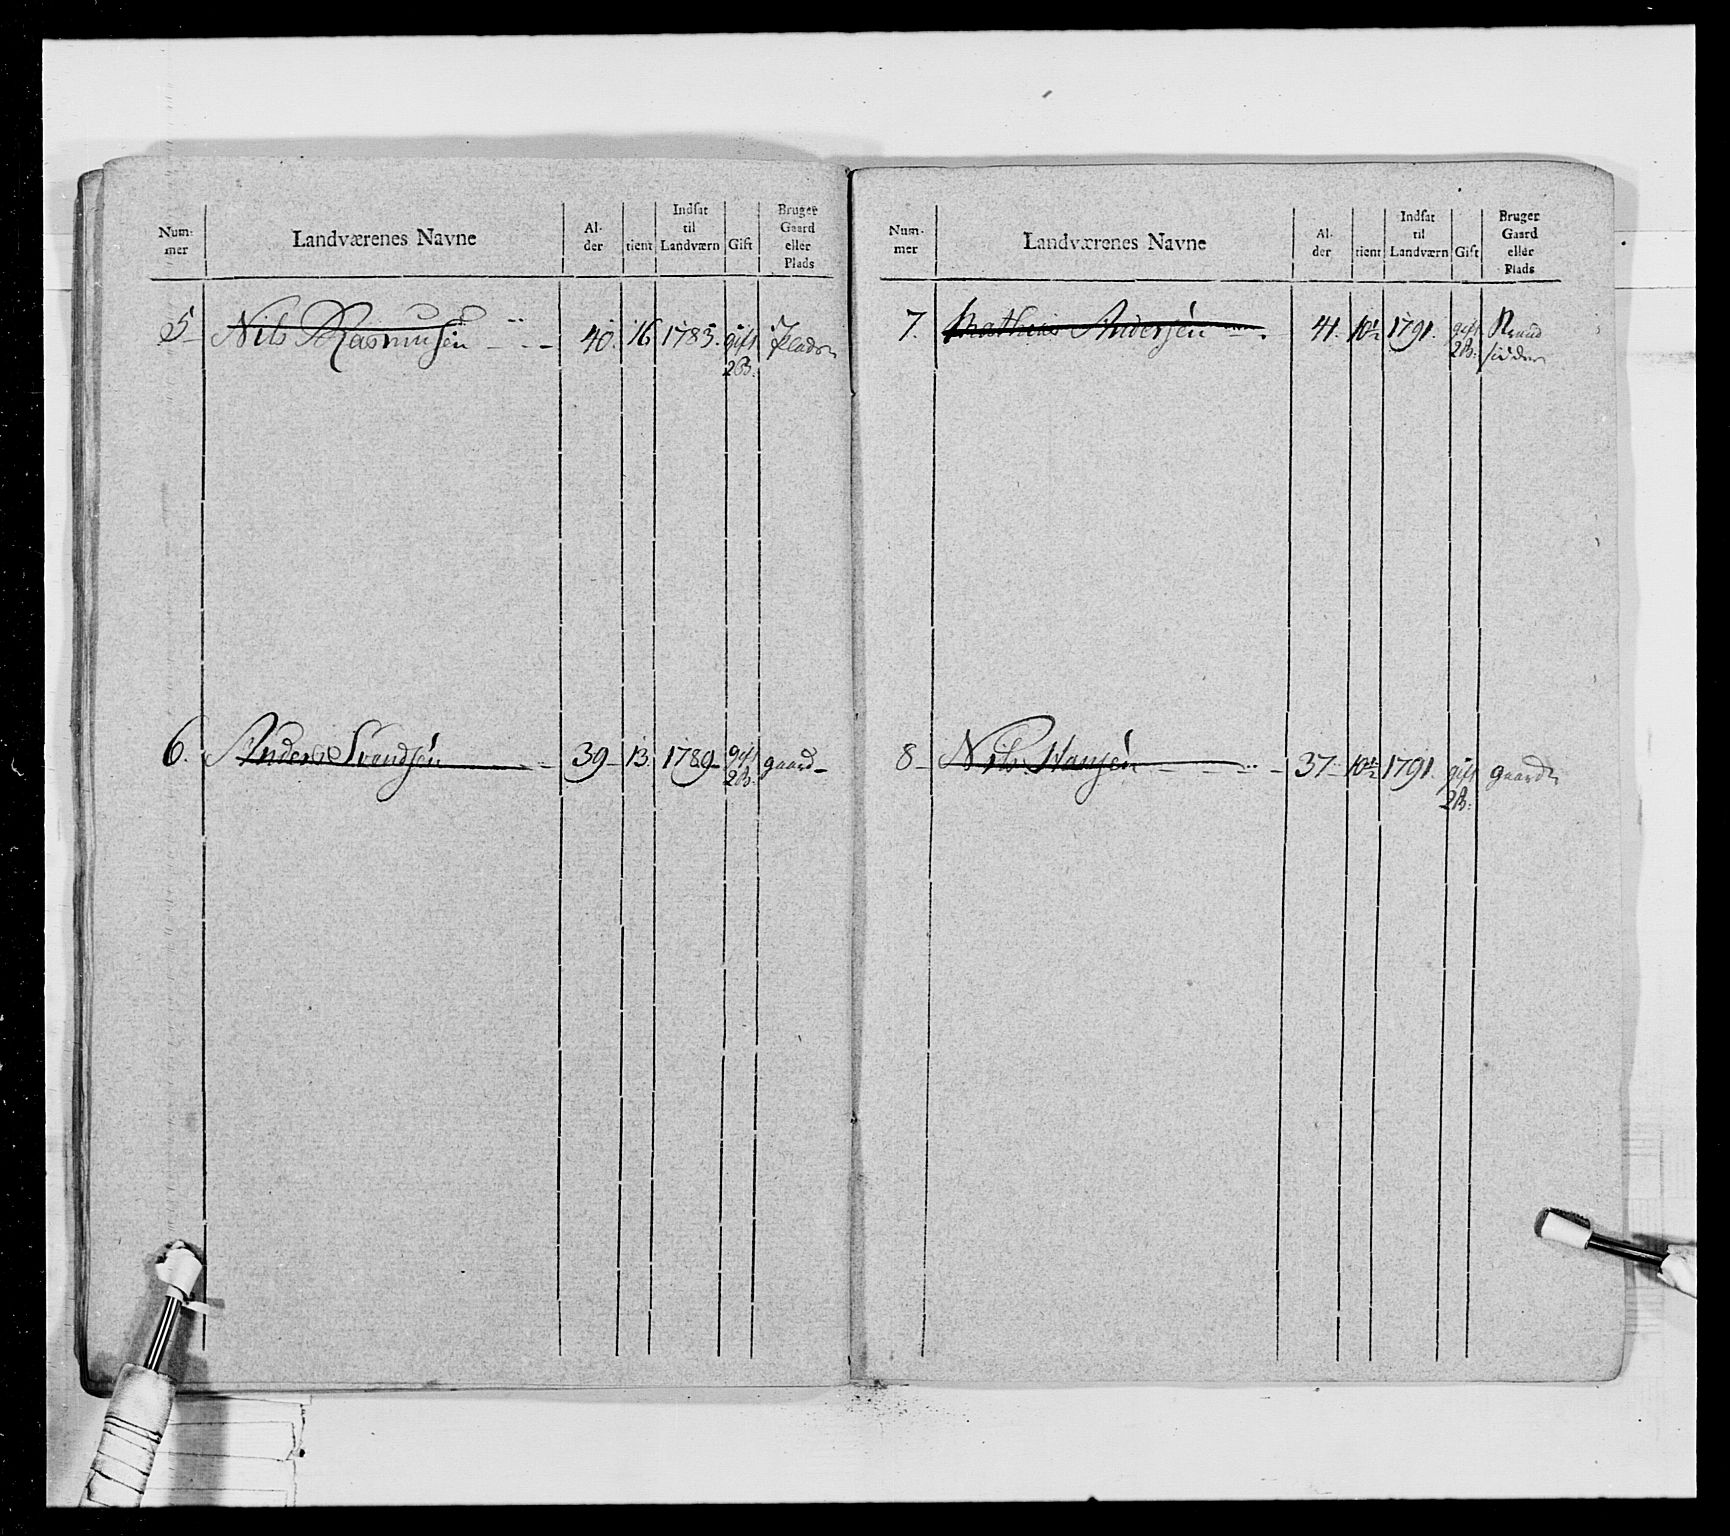 Num-
mer
Landværenes Navne
Al-
der
tient
Indsat
til
Landværn
Gift
Bruger
Gaard
eller
Plads
5 Nils Rasmusen 40. 16 1783. gift
2B. Plads
6. Anders Svendsén 39 13. 1789 gift
2B. gaard
Num-
mer
Landværenes Navne
Al-
der
tient
Indsat
til
Landværn
Gift
Bruger
Gaard
eller
Plads
7. Mathias Andersén 41. 10½ 1791. gift
2B. Strand
sidder
8 Nils Hansén 37 10½ 1791. gift
2B. gaard